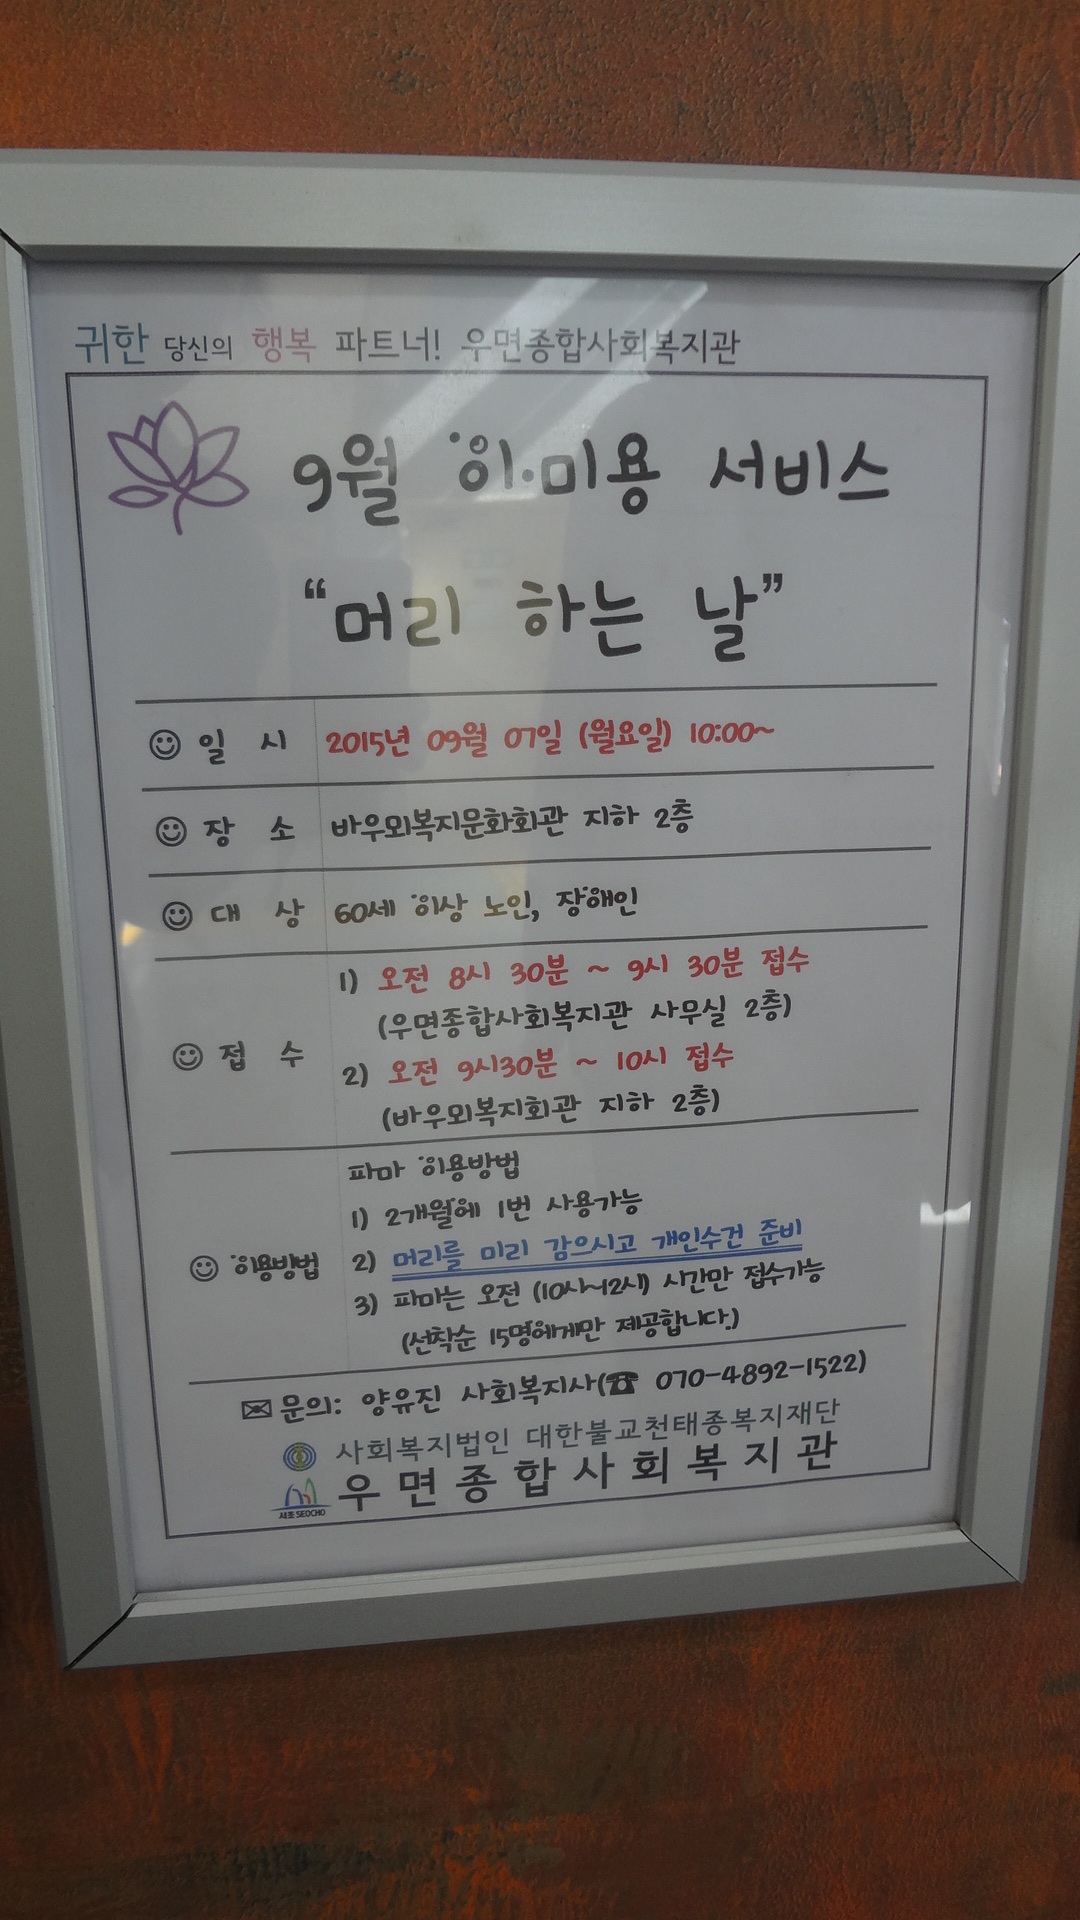 귀한 당신의 행복 파트너! 우면종합사회복지관
9월 이·미용 서비스
“머리 하는 날”
일 시 2015년 09월 07일 (월요일) 10:00~
장 소 바우뫼복지문화회관 지하 2층
대 상 60세 이상 노인, 장애인
접 수 1) 오전 8시 30분 ~ 9시 30분 접수
(우면종합사회복지관 사무실 2층)
2) 오전 9시30분 ~ 10시 접수
(바우뫼복지회관 지하 2층)
파마 이용방법
1) 2개월에 1번 사용가능
이용방법 2) 머리를 미리 감으시고 개인수건 준비
3) 파마는 오전 (10시~12시) 시간만 접수가능
(선착순 15명에게만 제공합니다.)
✉문의: 양유진 사회복지사(☎ 070-4892-1522)
사회복지법인 대한불교천태종복지재단
서초 SEOCHO 우면종합사회복지관